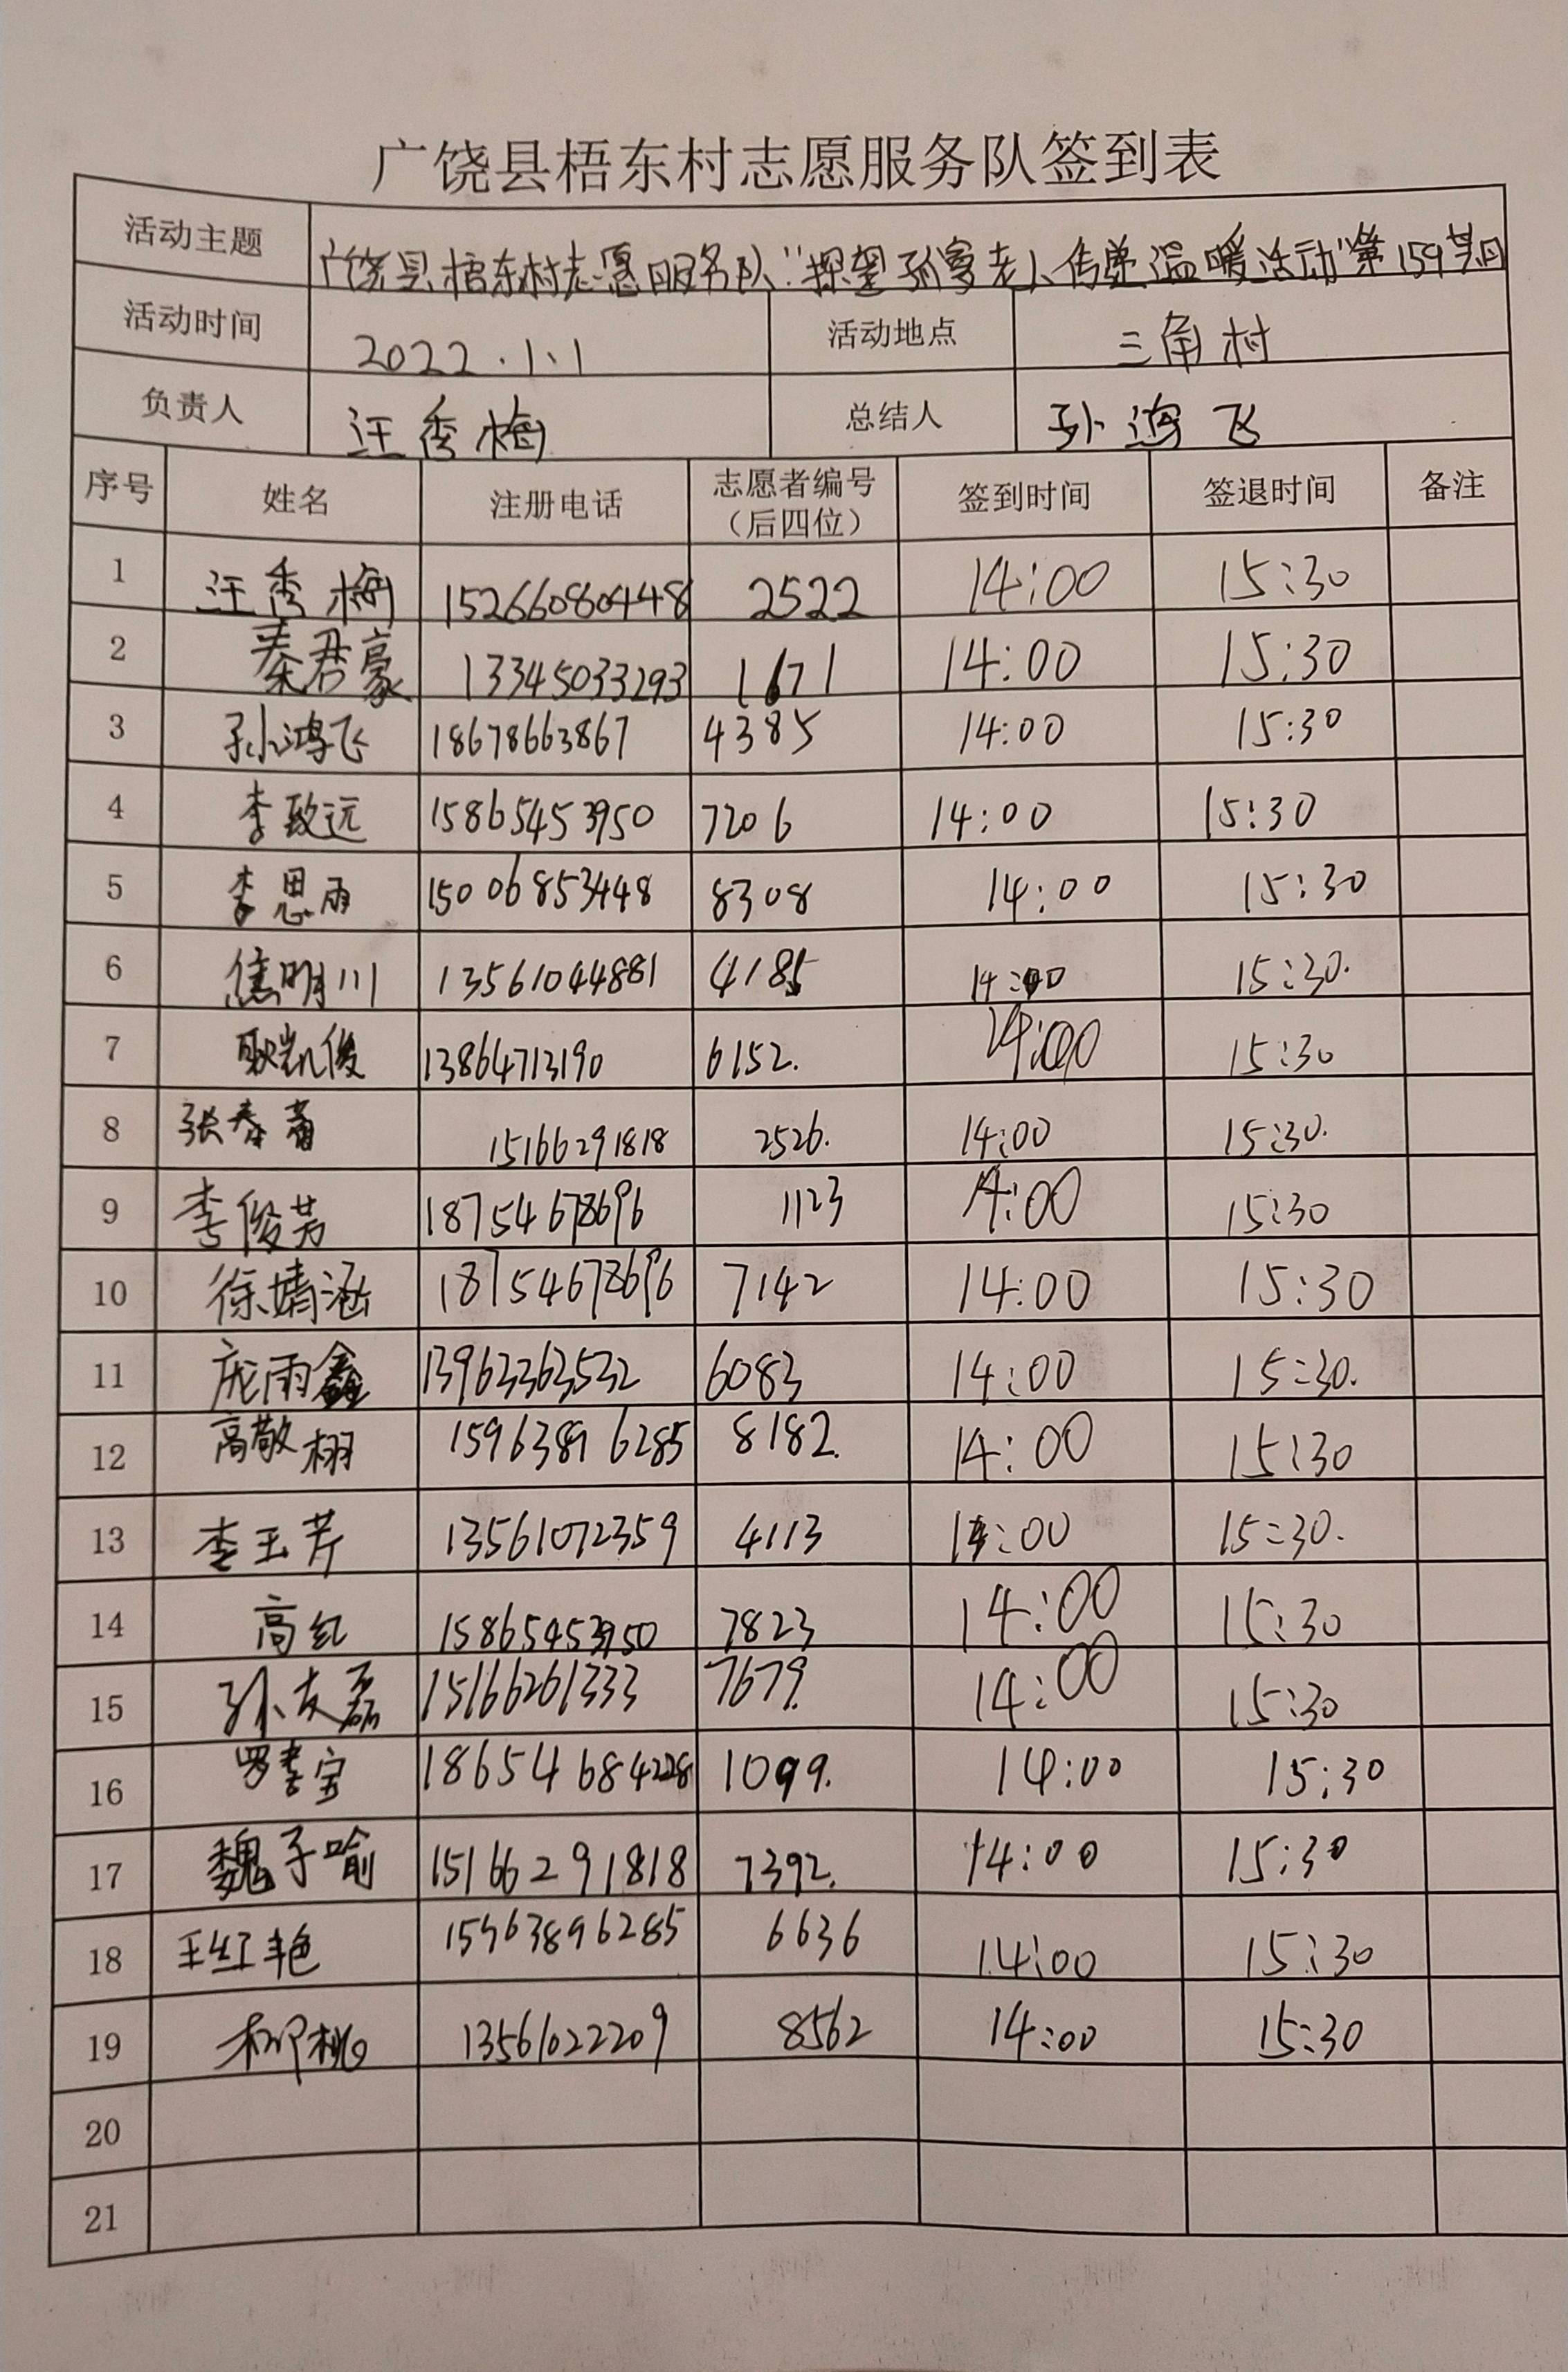 广饶县梧东村志愿服务队签到表
活动主题 广饶县梧东村志愿服务队“探望孤寡老人传递温暖活动”第159期
活动时间 2022.1.1 活动地点 三角村
负责人 汪秀梅 总结人 孙鸿飞
序号 姓名 注册电话 志愿者编号（后四位） 签到时间 签退时间 备注
1 汪秀梅 15266080448 2522 14:00 15:30
2 秦君豪 13345033293 1671 14:00 15:30
3 孙鸿飞 18678663867 4385 14:00 15:30
4 李致远 15865453950 7206 14:00 15:30
5 李思雨 15006853448 8308 14:00 15:30
6 焦明川 13561044881 4185 14:00 15:30.
7 耿凯俊 13864713190 6152. 14:00 15:30
8 张春 15166291818 2526. 14:00 15:30.
9 李俊芳 18754678696 1123 14:00 15:30
10 徐婧涵 18754678696 7142 14:00 15:30
11 庞雨鑫 13963363532 6083 14:00 15:30.
12 高敬栩 15963896285 8182. 14:00 15:30
13 李玉芹 13561072359 4113 14:00 15:30.
14 高红 15865453950 7823 14:00 15:30
15 孙友磊 15166261333 7679. 14:00 15:30
16 罗孝宝 18654684228 1099. 14:00 15:30
17 魏子喻 15166291818 7392. 14:00 15:30
18 王红艳 15963896285 6636 14:00 15:30
19 柳桃 13561022209 8562 14:00 15:30
20
21